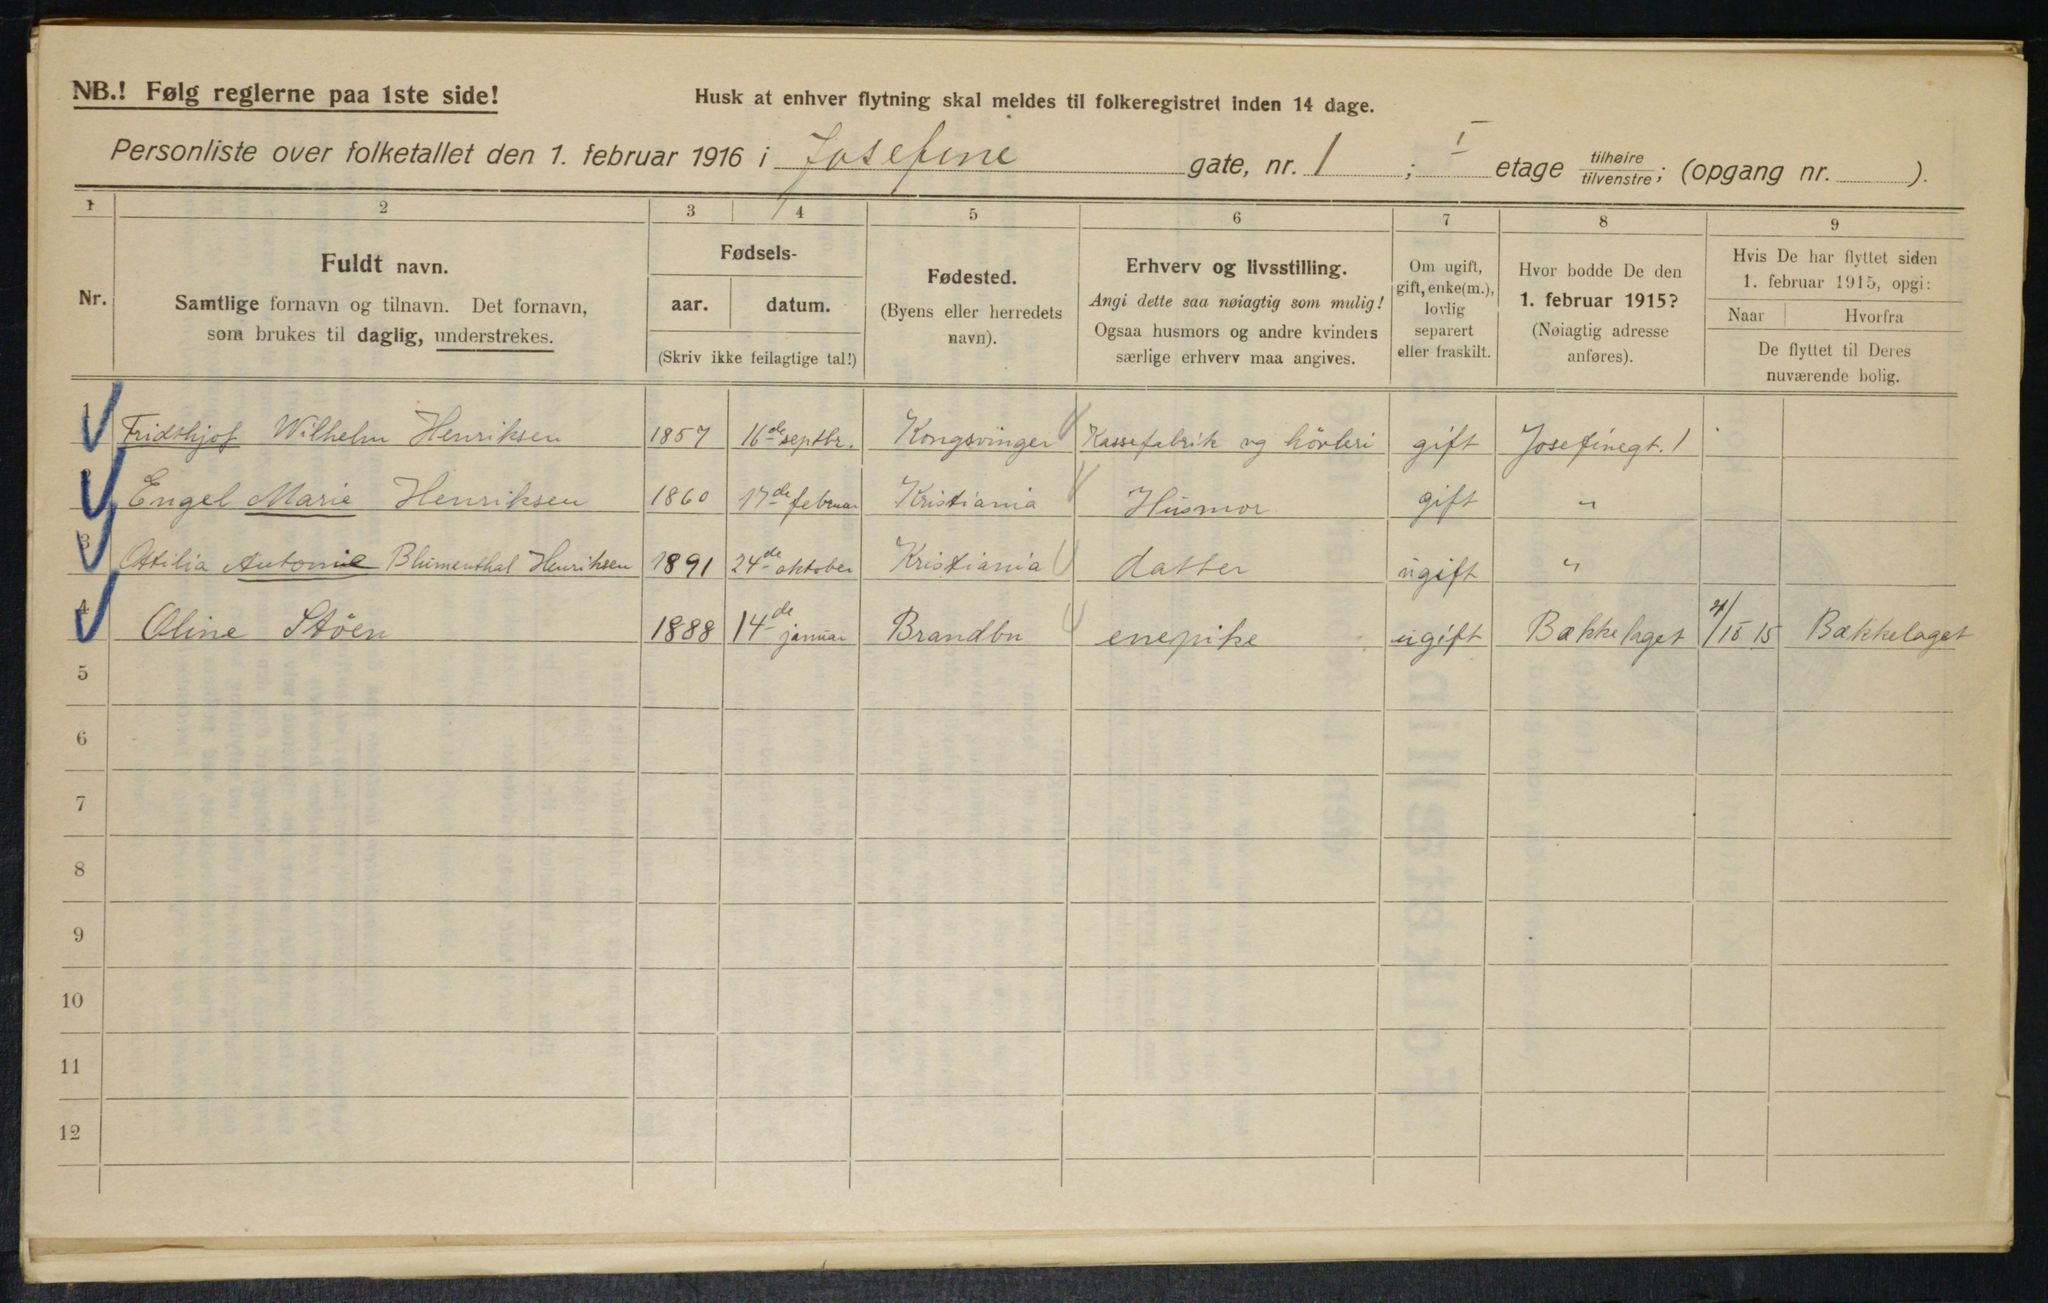 NB.! Følg reglerne paa 1ste side!
Husk at enhver flytning skal meldes til folkeregistret inden 14 dage.
Personliste over folketallet den 1. februar 1916 i Josefine gate, nr. 1 ; I etage tilhøire / tilvenstre; (opgang nr. ).
1 2 3 4 5 6 7 8 9
Nr.
Fuldt navn.
Samtlige fornavn og tilnavn. Det fornavn,
som brukes til daglig, understrekes.
Fødsels-
aar. datum.
(Skriv ikke feilagtige tal!)
Fødested.
(Byens eller herredets
navn).
Erhverv og livsstilling.
Angi dette saa nøiagtig som mulig!
Ogsaa husmors og andre kvinders
særlige erhverv maa angives.
Om ugift,
gift, enke(m.),
lovlig
separert
eller fraskilt.
Hvor bodde De den
1. februar 1915?
(Nøiagtig adresse
anføres).
Hvis De har flyttet siden
1. februar 1915, opgi:
Naar Hvorfra
De flyttet til Deres
nuværende bolig.
1 Fridthjof Wilhelm Henriksen 1857 16de septbr. Kongsvinger Kassefabrik og hövleri gift Josefinegt. 1
2 Engel Marie Henriksen 1860 17de februar Kristiania Husmor gift "
3 Ottilia Antonie Blumenthal Henriksen 1891 24de oktober Kristiania datter ugift "
4 Oline Stöen 1888 14de januar Brandbu enepike ugift Bækkelaget 15 Bækkelaget
5
6
7
8
9
10
11
12